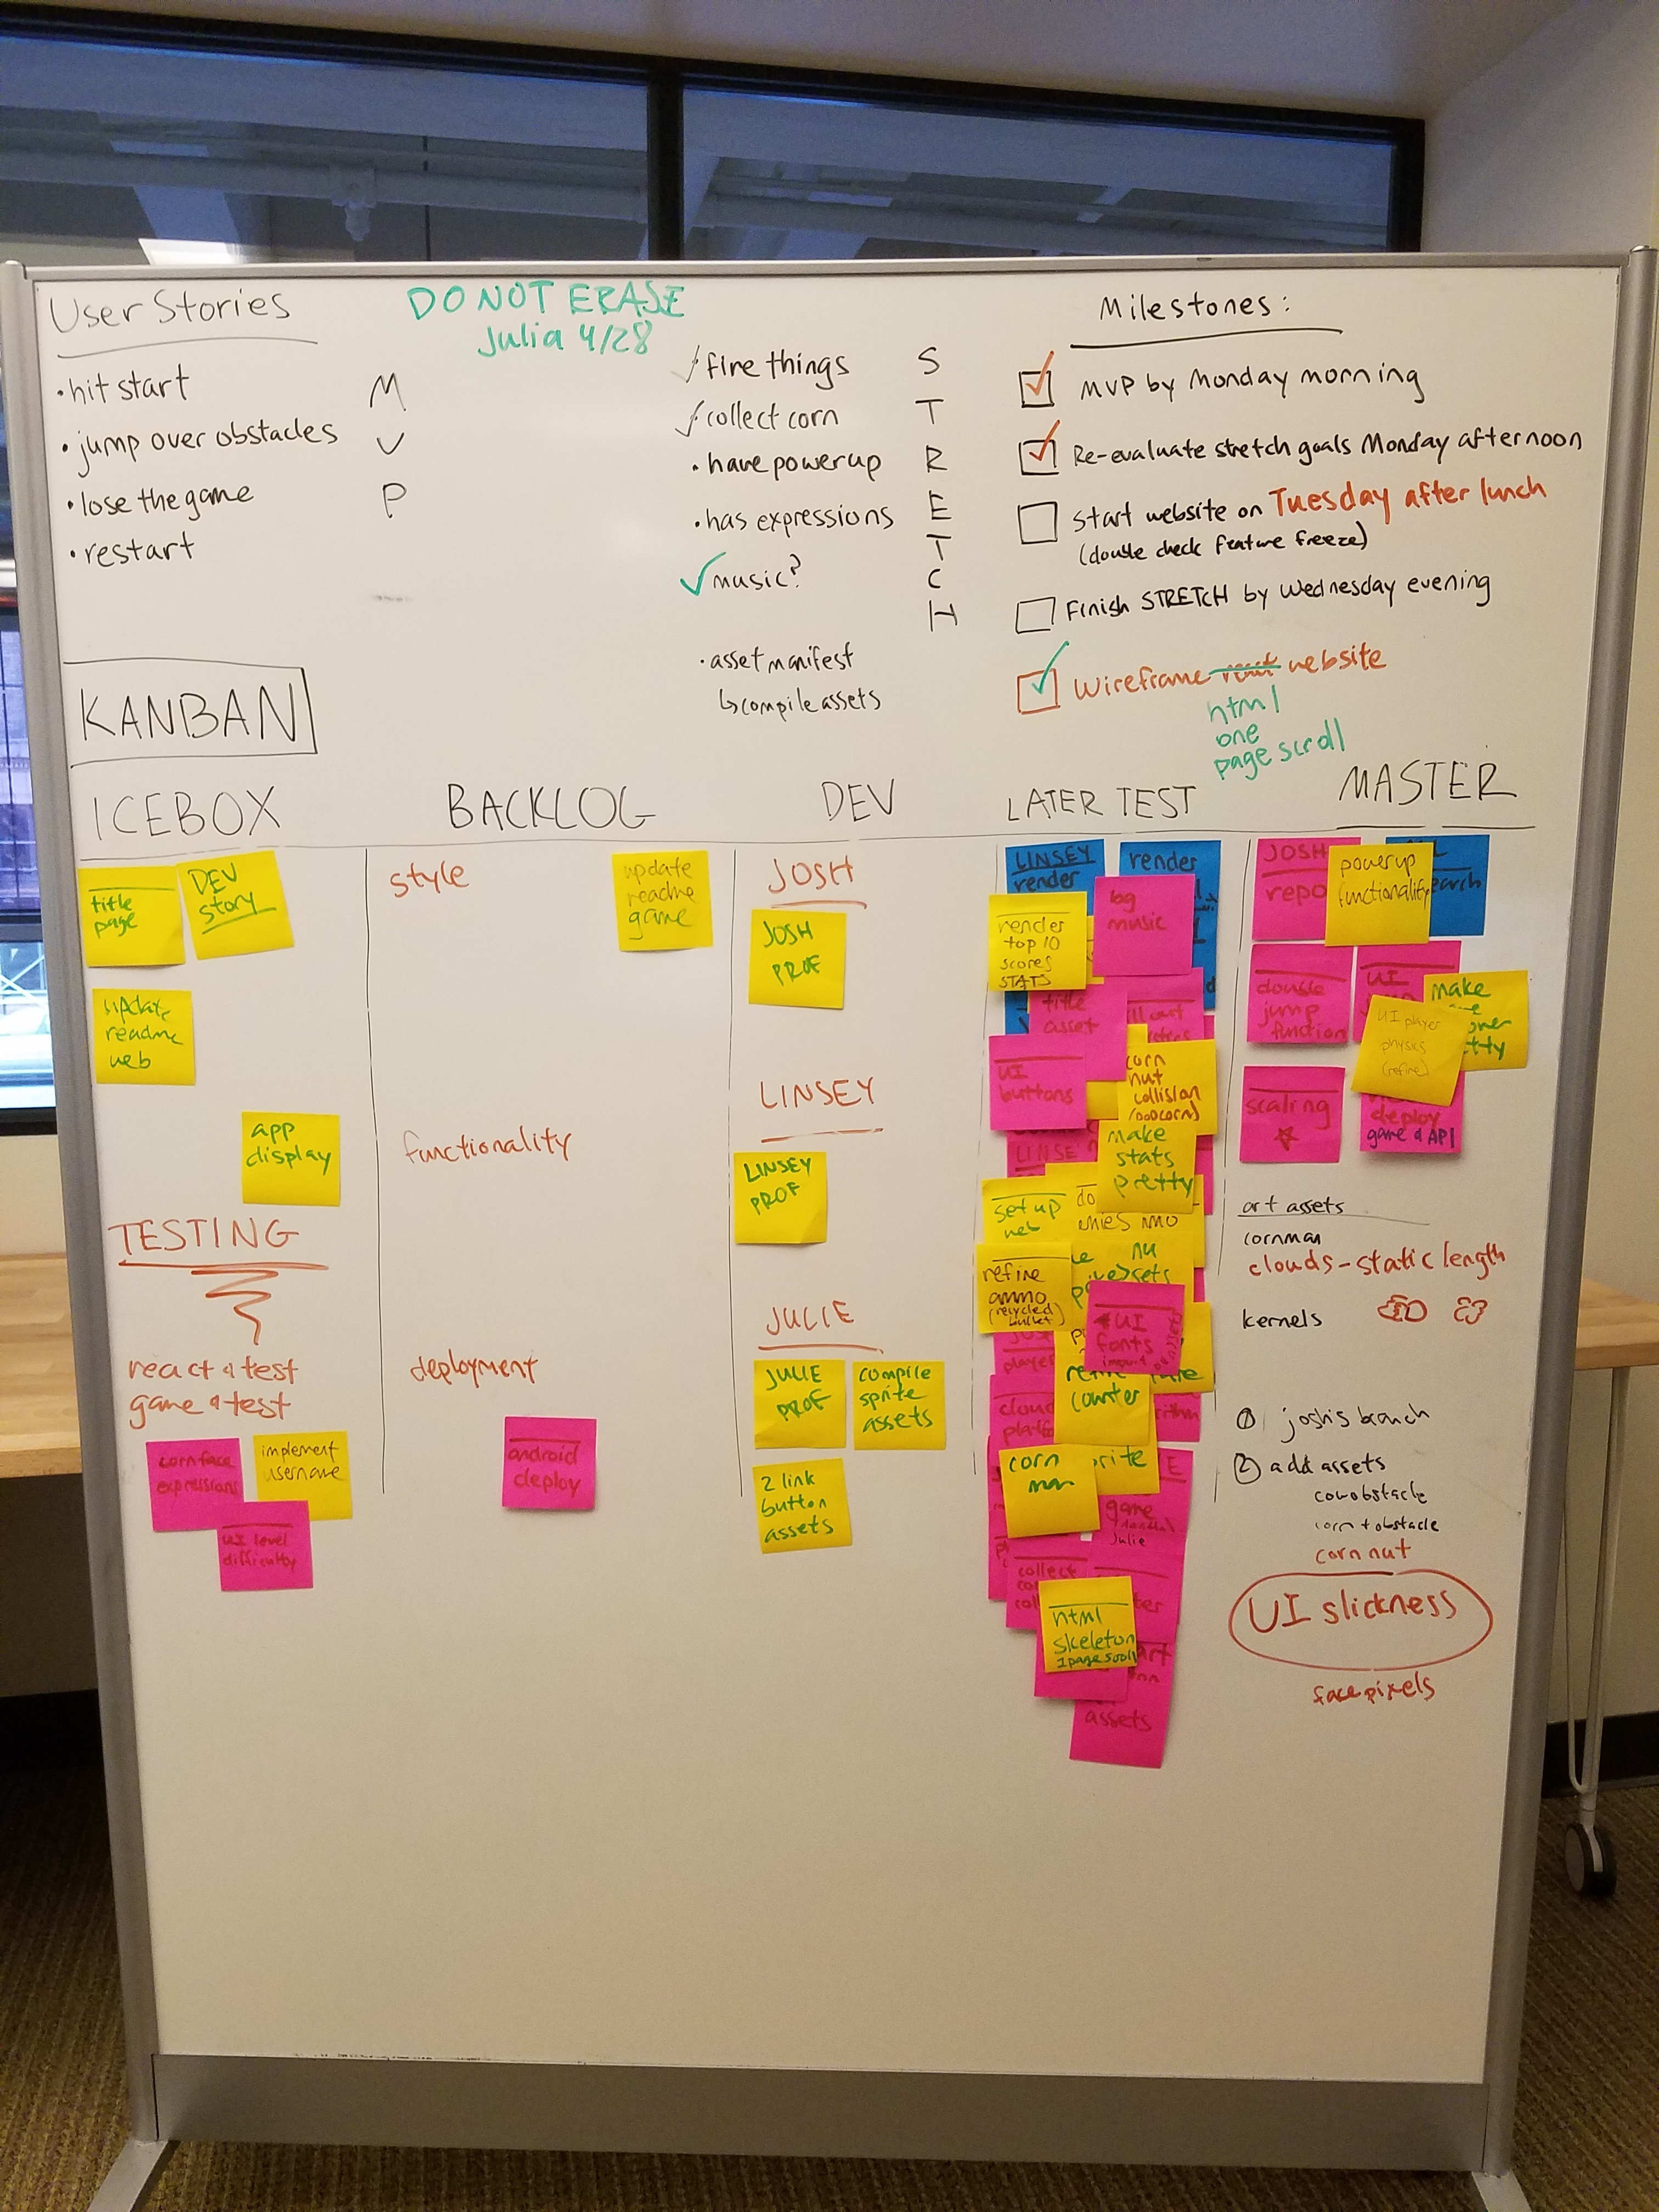 User Stories
DO NOT ERASE
Julia 4/28
• hit start
• jump over obstacles
• lose the game
• restart
M
V
P
✓ fire things
✓ collect corn
• have powerup
• has expressions
✓ music?
• asset manifest
↳ compile assets
S
T
R
E
T
C
H
Milestones:
MVP by Monday morning
Re-evaluate stretch goals Monday afternoon
Start website on Tuesday after lunch
(double check feature freeze)
Finish STRETCH by Wednesday evening
Wireframe react website
html
one
page scroll
KANBAN
ICEBOX
title
page
DEV
story
update
readme
web
app
display
TESTING
react & test
game & test
cornface
expressions
implement
username
UI level
difficulty
BACKLOG
style
update
readme
game
functionality
deployment
android
deploy
DEV
JOSH
JOSH
PROF
LINSEY
LINSEY
PROF
JULIE
JULIE
PROF
compile
sprite
assets
2 link
button
assets
LATER TEST
LINSEY
render
render
render
top 10
scores
STATS
bg
music
title
asset
UI
buttons
corn
nut
collision
(popcorn)
LINSE
make
stats
pretty
set up
web
refine
ammo
(recycled
bullet)
UI
fonts
import
player
counter
cloud
corn
man
game
Julie
collect
html
skeleton
1 page scroll
assets
MASTER
JOSH
repo
powerup
functionality
earch
double
jump
function
UI
make
UI player
physics
(refine)
scaling
deploy
game & API
art assets
cornman
clouds - static length
kernels
① josh's branch
② add assets
cowobstacle
corn + obstacle
corn nut
UI slickness
face pixels